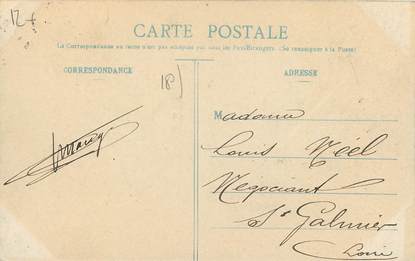 12
CARTE POSTALE
La Correspondance au recto n'est pas acceptée par tous les Pays Etrangers. (Se renseigner à la Poste)
CORRESPONDANCE
ADRESSE
18
Madame
Louis Néel
Négociant
St Galmier
Loire